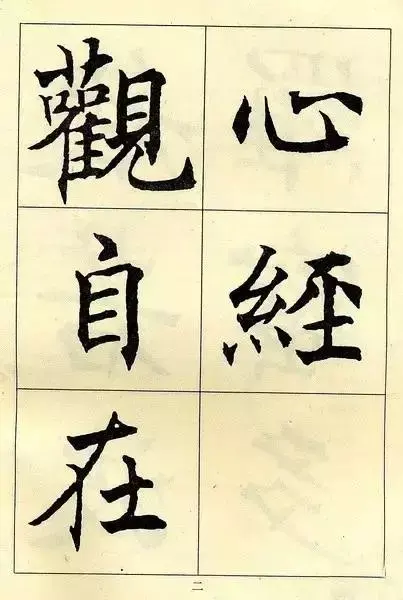 心經
觀自在
二